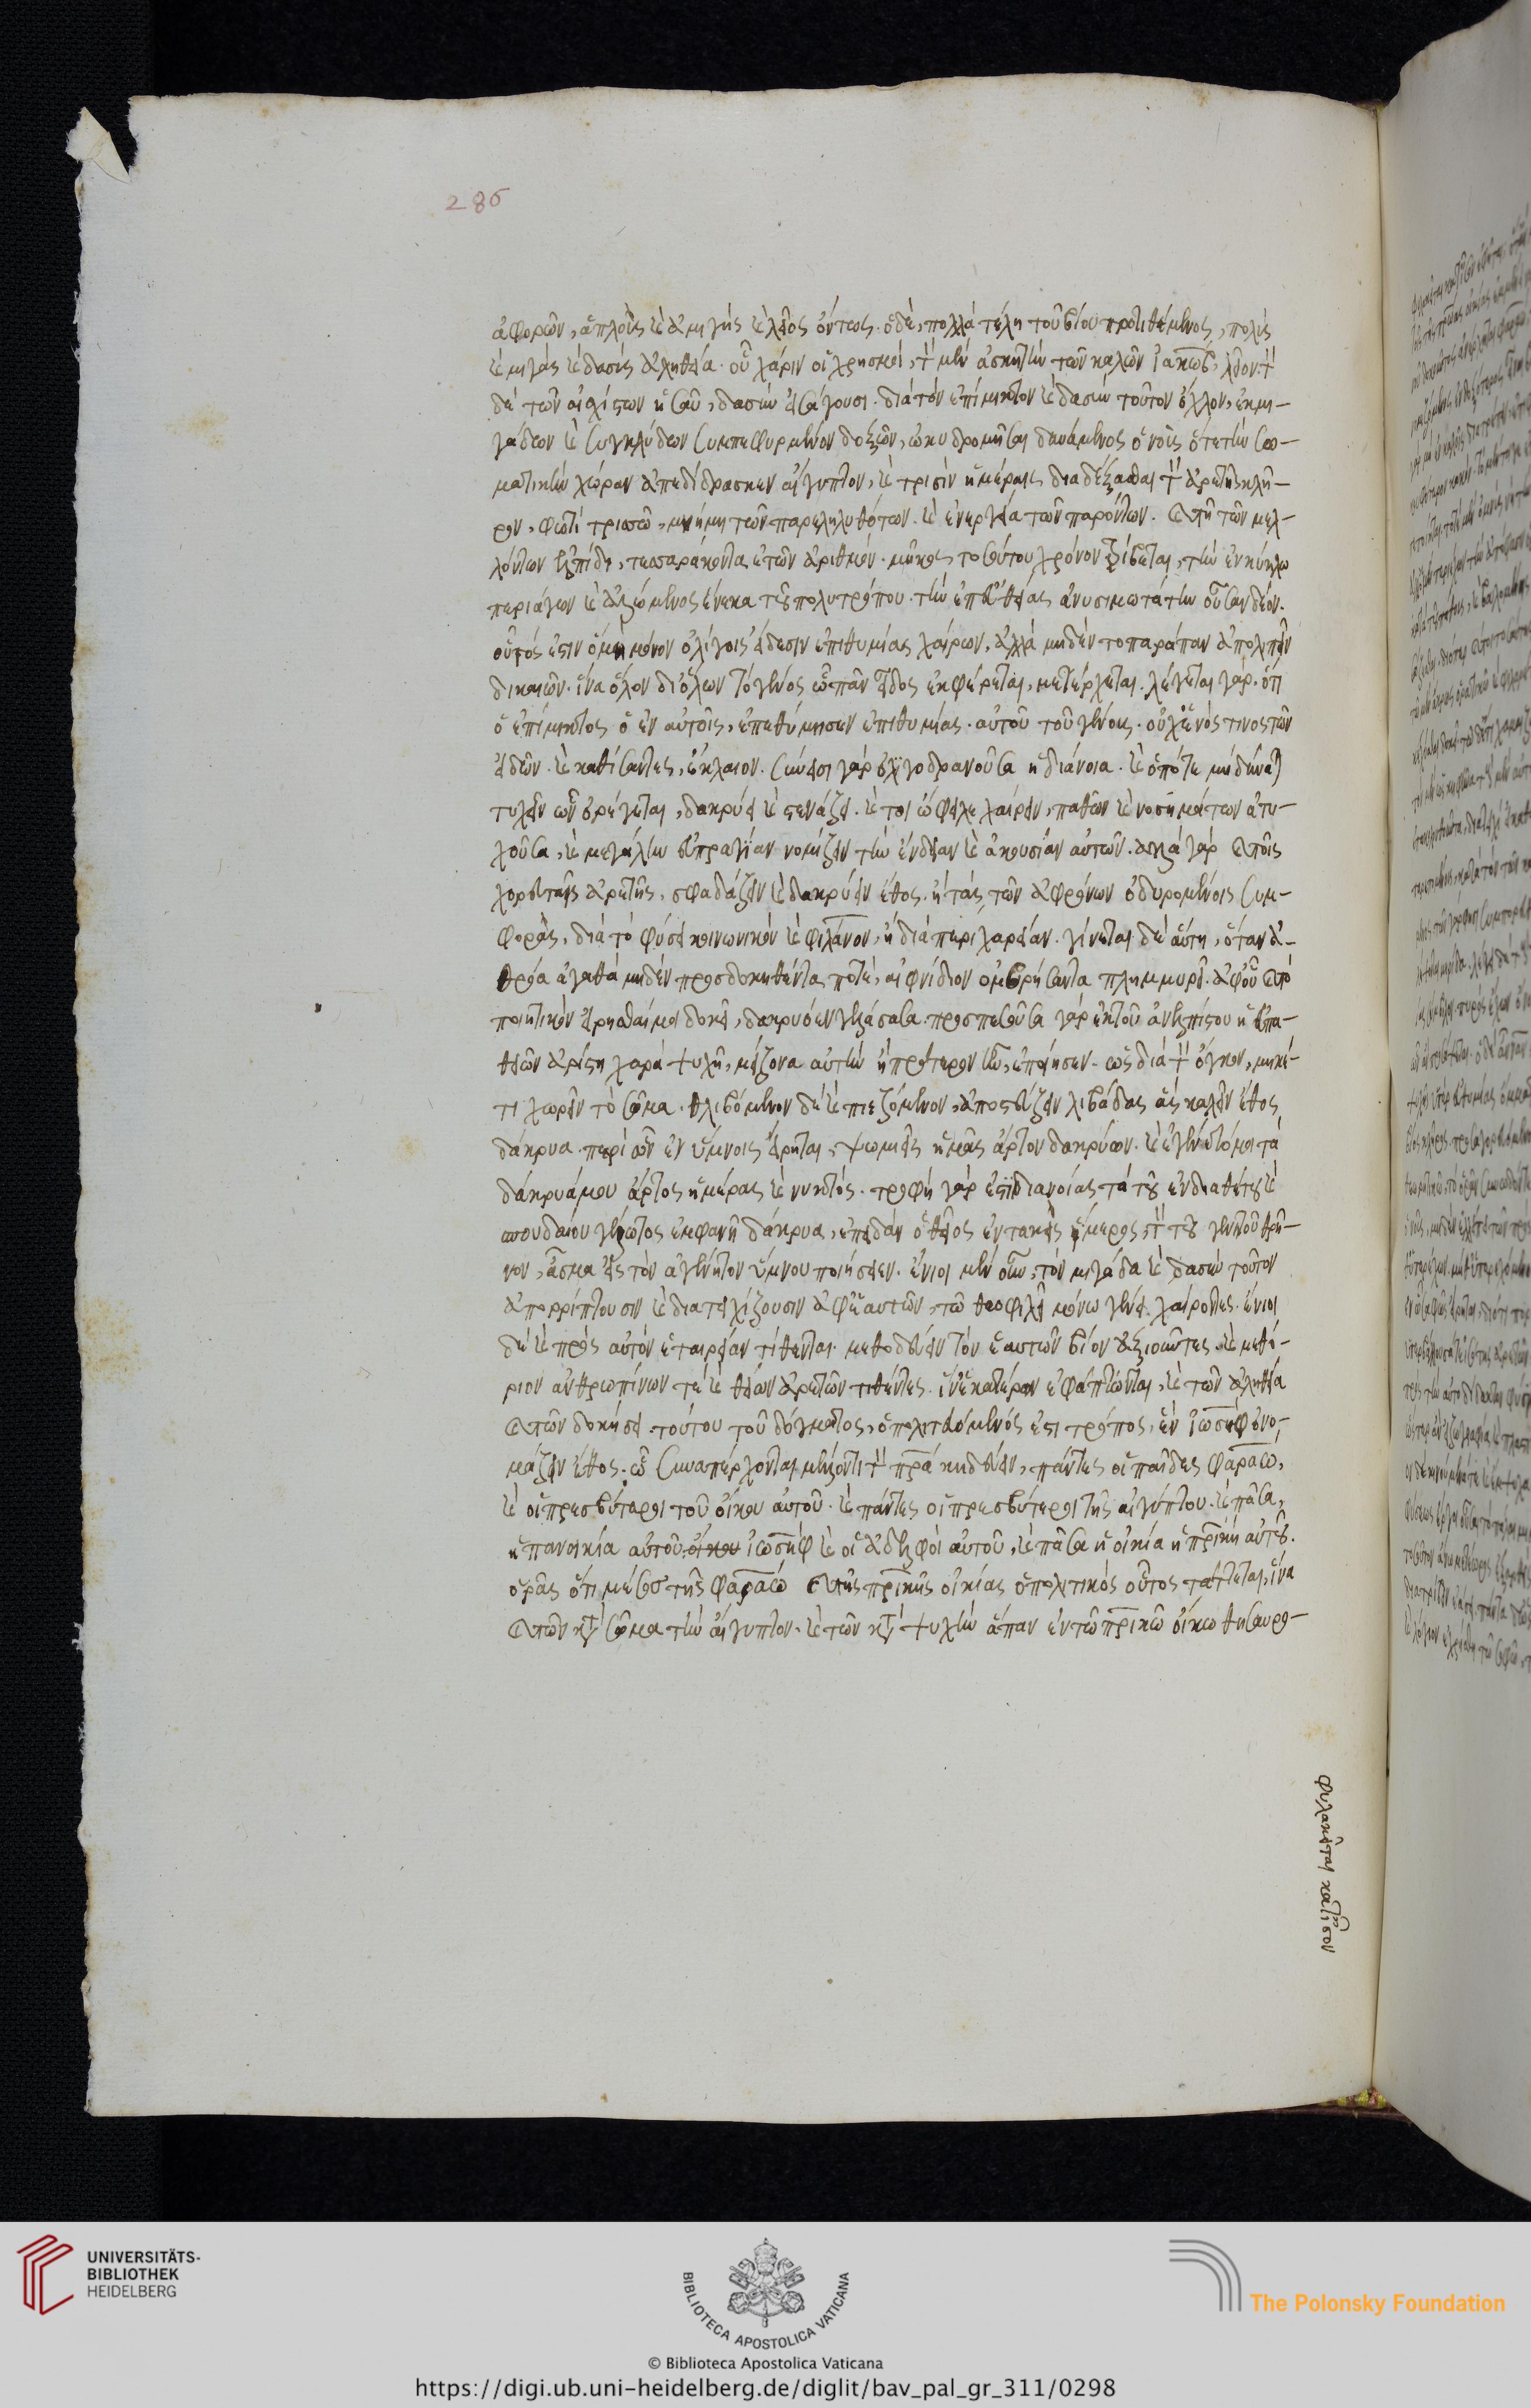 286
ἀφορῶν, ἁπλοῦς καὶ ἀμιγὴς καὶ λεῖος ὄντως· ὁ δὲ, πολλὰ τέλη τοῦ βίου προτιθέμενος, πολὺς
καὶ μιγὰς καὶ δασὺς ἀληθεία. οὗ χάριν οἱ χρησμοὶ, τὸν μὲν ἀσκητὴν τῶν καλῶν ἰακὼβ, λεῖον· τὸν
δὲ τῶν αἰσχίστων ἠσαῦ, δασὺν εἰσάγουσι. διὰ τὸν ἐπίμικτον καὶ δασὺν τοῦτον ὄχλον, ἐκ μι-
γάδων καὶ συγκλύδων συμπεφυρμένον δοξῶν, ὠκυδρομῆσαι δυνάμενος ὁ νοῦς ὅτε τὴν σω-
ματικὴν χώραν ἀπεδίδρασκεν αἴγυπτον, καὶ τρισὶν ἡμέραις διαδέξασθαι τὸν ἀρετῆς κλῆ-
ρον, φωτὶ τρισσῷ, μνήμῃ τῶν παρεληλυθότων. καὶ ἐνεργεία τῶν παρόντων. καὶ τῆ τῶν μελ-
λόντων ἐλπίδι, τεσσαράκοντα ἐτῶν ἀριθμόν· μῆκος τοσούτου χρόνου τρίβεται, τὴν ἐν κύκλω
περιάγων καὶ ἀλώμενος ἕνεκα τοῦ πολυτρόπου· τὴν ἐπ' εὐθείας ἀνυσιμωτάτην οὖσαν δέον.
οὗτός ἐστιν ὁ μὴ μόνον ὀλίγοις εἴδεσιν ἐπιθυμίας χαίρων, ἀλλὰ μηδὲν τοπαράπαν ἀπολιπεῖν
δικαιῶν· ἵνα ὅλον δι' ὅλων τὸ γένος ὧ πᾶν εἶδος ἐμφέρεται, μετέρχεται. λέγεται γὰρ· ὅτι
ὁ ἐπίμικτος ὁ ἐν αὐτοῖς, ἐπεθύμησεν ἐπιθυμίας· αὐτοῦ τοῦ γένους· οὐχ' ἑνός τινος τῶν
εἰδῶν. καὶ καθίσαντες, ἔκλαιον. σύνεσι γὰρ ὀλιγοδρανοῦσα ἡ διάνοια. καὶ ὁπότε μὴ δύναται
τυχεῖν ὧν ὀρέγεται, δακρύει καὶ στενάζει. καίτοι ὤφειλε χαίρειν, παθῶν καὶ νοσημάτων ἀτυ-
χοῦσα, καὶ μεγάλην εὐπραγίαν νομίζειν τὴν ἔνδειαν καὶ ἀπουσίαν αὐτῶν. ἀλλὰ γὰρ καὶ τοῖς
χορευταῖς ἀρετῆς, σφαδάζειν καὶ δακρύειν ἔθος. ἢ τὰς τῶν ἀφρόνων ὀδυρομένοις συμ-
φορὰς, διὰ τὸ φύσει κοινωνικὸν καὶ φιλάνον, ἢ διὰ περιχάρειαν. γίνεται δὲ αὕτη, ὅταν ἀ-
θρόα ἀγαθὰ μηδὲν προσδοκηθέντα ποτὲ, αἰφνίδιον ὀμβρήσαντα πλημμυρῆ. ἀφ' οὗ καὶ τὸ
ποιητικὸν εἰρῆσθαί μοι δοκεῖ, δακρυόεν γελάσασα. προσπεσοῦσα γὰρ ἐκ τοῦ ἀνελπίστου ἡ εὐπα-
θειῶν ἀρίστη χαρὰ ψυχῆ, μείζονα αὐτὴν ἢ πρότερον ἦν, ἐποίησεν. ὡς διὰ τὸν ὄγκον, μηκέ-
τι χωρεῖν τὸ σῶμα. θλιβόμενον δὲ καὶ πιεζόμενον, ἀποστάζειν λιβάδας ἃς καλεῖν ἔθος
δάκρυα. περὶ ὧν ἐν ὕμνοις εἴρηται, ψωμιεῖς ἡμᾶς ἄρτον δακρύων. καὶ ἐγένετό μοι τὰ
δάκρυά μου ἄρτος ἡμέρας καὶ νυκτός. τροφὴ γάρ ἐστι διανοίας τὰ τοῦ ἐνδιαθέτου καὶ
σπουδαίου γέλωτος ἐμφανῆ δάκρυα, ἐπειδὰν ὁ θεῖος ἐντακεὶς ἵμερος, τὸν τοῦ γενητοῦ θρῆ-
νον, ἆσμα εἰς τὸν ἀγένητον ὕμνου ποιήσειεν. ἔνιοι μὲν οὖν, τὸν μιγάδα καὶ δασὺν τοῦτον
ἀπορρίπτουσιν καὶ διατειχίζουσιν ἀφ' ἑαυτῶν, τῶ θεοφιλεῖ μόνω γένει χαίροντες. ἔνιοι
δὲ καὶ πρὸς αὐτὸν ἑταιρείαν τίθενται. μεθοδεύειν τὸν ἑαυτῶν βίον ἀξιοῦντες. καὶ μεθό-
ριον ἀνθρωπίνων τὲ καὶ θείων ἀρετῶν τιθέντες. ἵν' ἑκατέρων ἐφάπτωνται, καὶ τῶν ἀληθεία
καὶ τῶν δοκήσει. τούτου τοῦ δόγματος, ὁ πολιτευόμενός ἐστι τρόπος, ὃν ἰωσὴφ ὀνο-
μάζειν ἔθος. ὧ συναπέρχονται μέλλοντι τὸν πρα κηδεύειν, πάντες οἱ παῖδες φαραὼ,
καὶ οἱ πρεσβύτεροι τοῦ οἴκου αὐτοῦ. καὶ πάντες οἱ πρεσβύτεροι τῆς αἰγύπτου. καὶ πᾶσα
ἡ πανοικία αὐτοῦ οἴκου ἰωσὴφ καὶ οἱ ἀδελφοὶ αὐτοῦ, καὶ πᾶσα ἡ οἰκία ἡ πρικὴ αὐτοῦ.
ὁρᾷς ὅτι μέσος τῆς φαραὼ καὶ τῆς πρικῆς οἰκίας ὁ πολιτικὸς οὗτος τάττεται, ἵνα
καὶ τῶν κατὰ σῶμα τὴν αἴγυπτον. καὶ τῶν κατὰ ψυχὴν ἅπαν ἐν τῶ πρικῶ οἴκω θησαυρο-
φυλακεῖται κατ' ἴσον
UNIVERSITÄTS-
BIBLIOTHEK
HEIDELBERG
BIBLIOTECA APOSTOLICA VATICANA
The Polonsky Foundation
© Biblioteca Apostolica Vaticana
https://digi.ub.uni-heidelberg.de/diglit/bav_pal_gr_311/0298